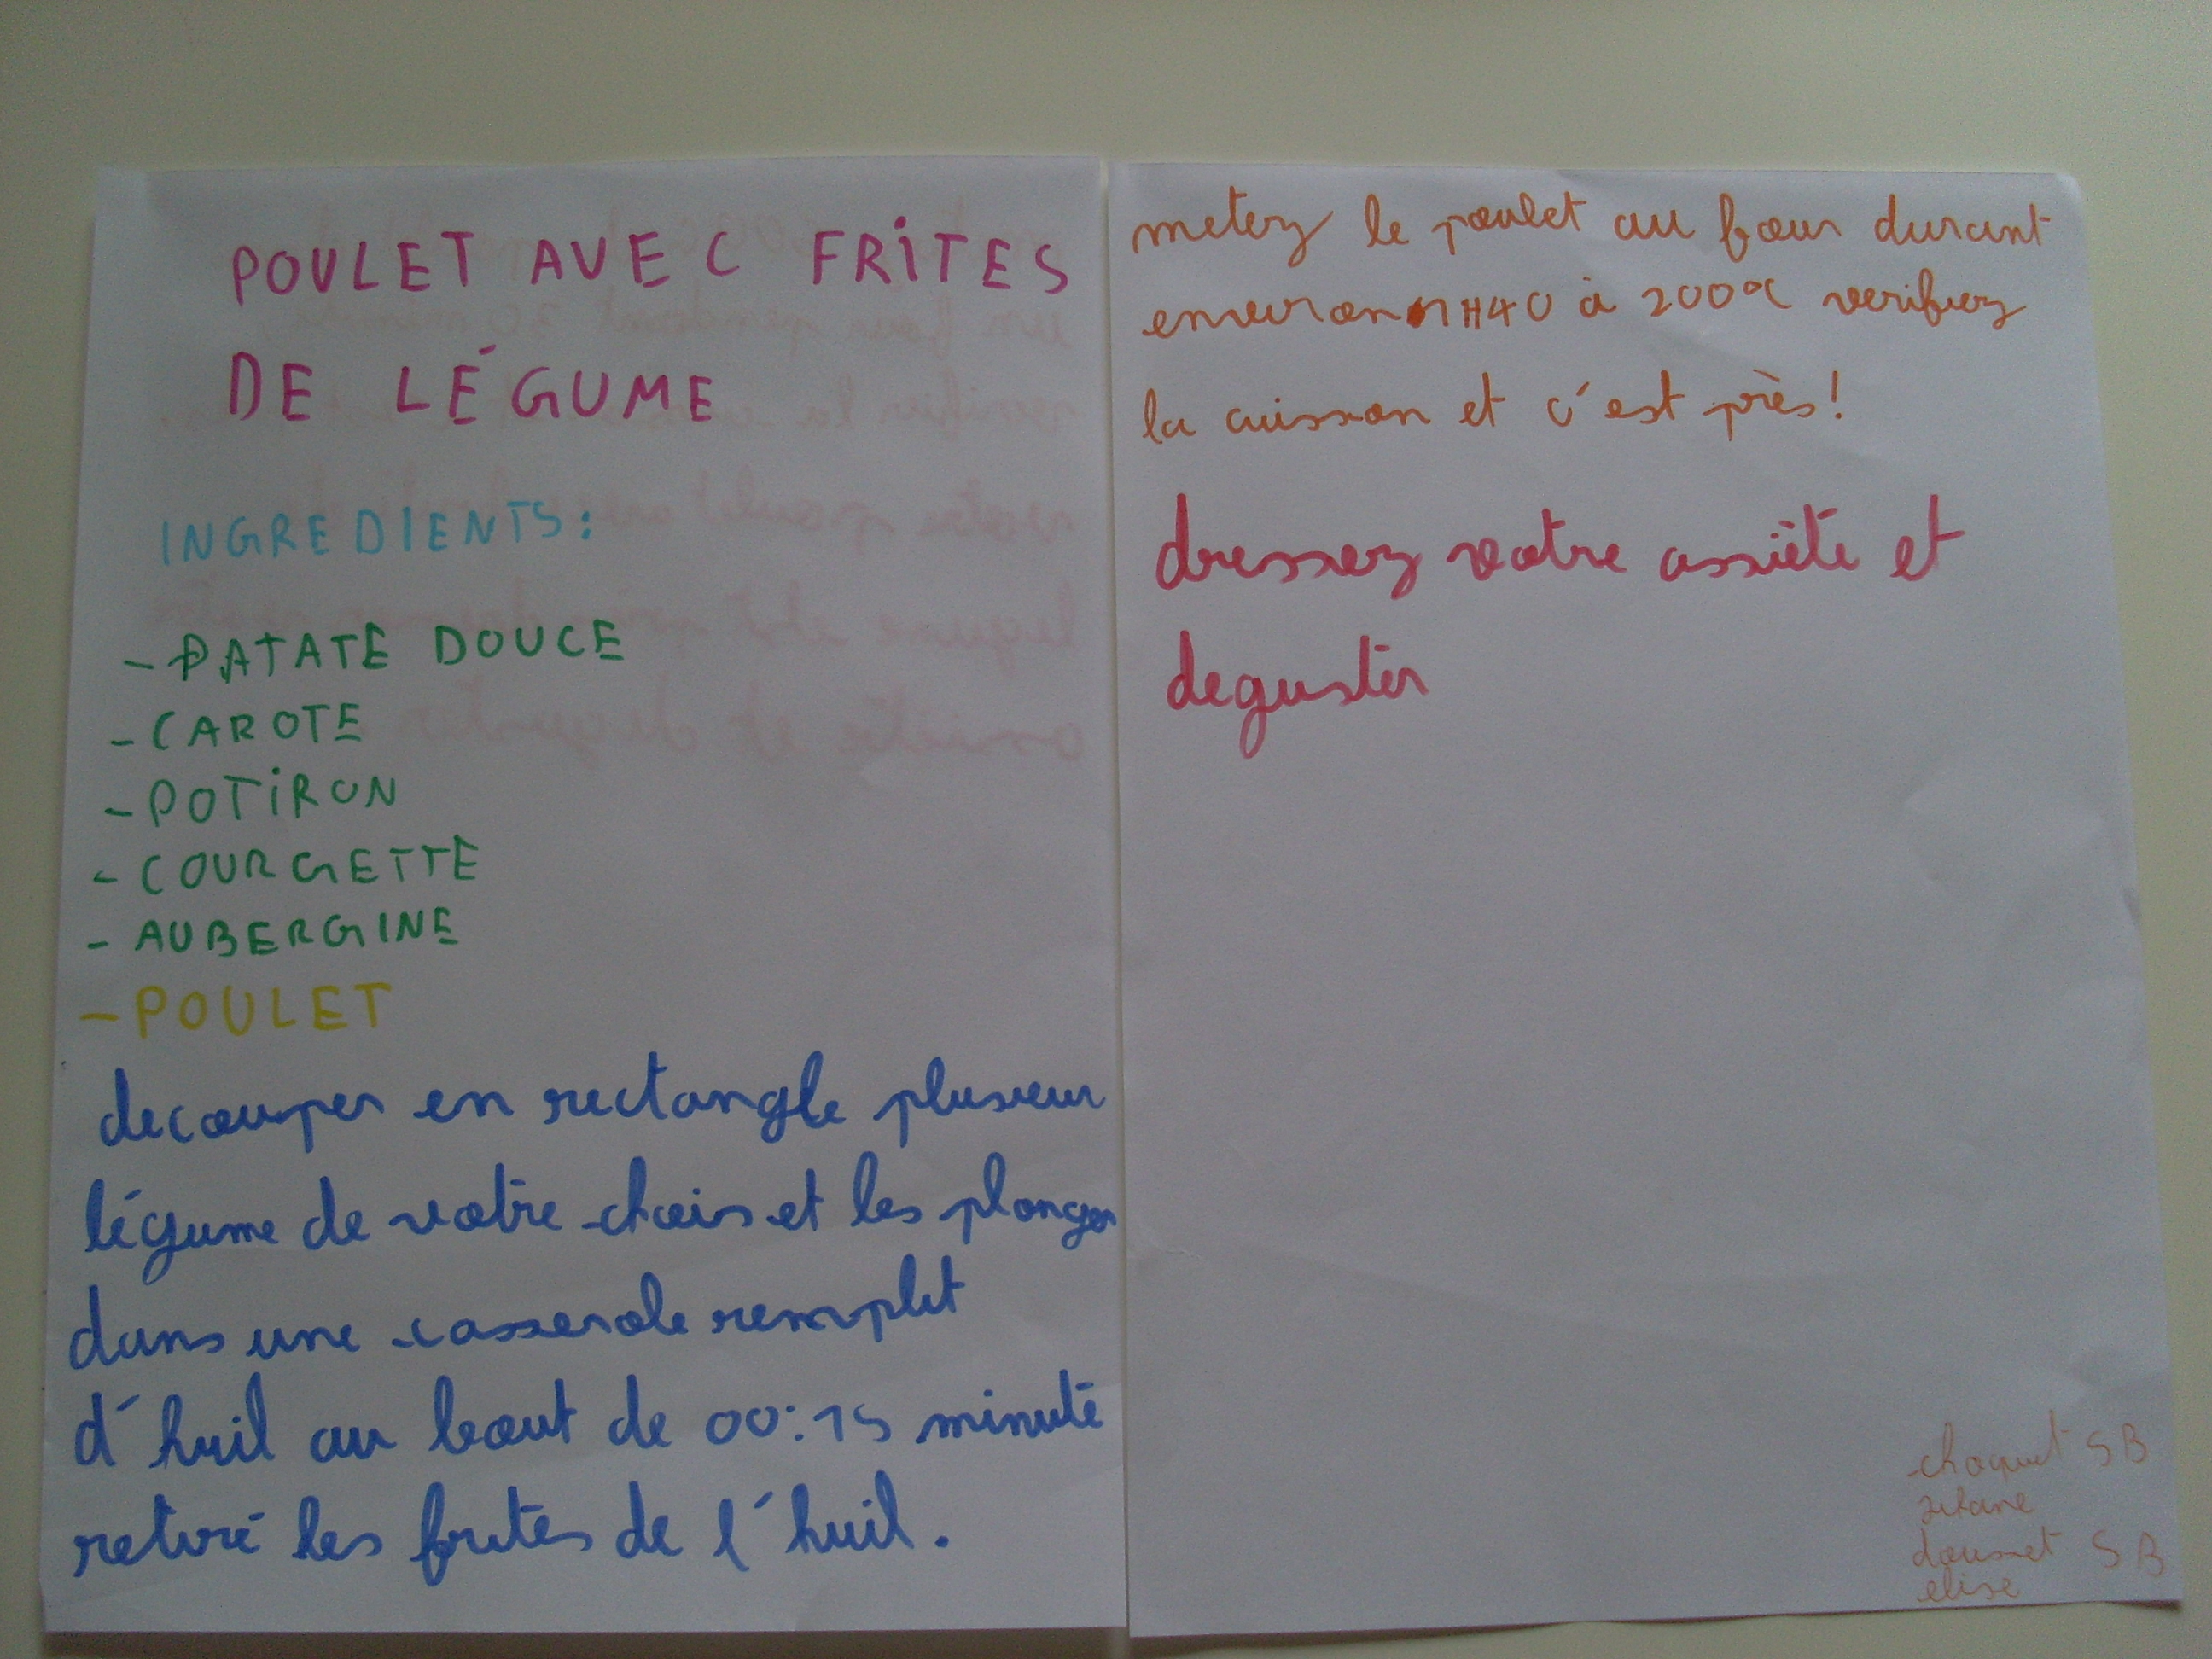 POULET AVEC FRITES
DE LÉGUME
INGREDIENTS:
- PATATE DOUCE
- CAROTE
- POTIRON
- COURGETTE
- AUBERGINE
- POULET
decouper en rectangle plusieur
légume de votre choix et les plonger
dans une casserole remplit
d'huil au bout de 00:15 minute
retiré les frites de l'huil.
metez le poulet au four durant
environ 1H40 à 200°C verifiez
la cuisson et c'est près!
dressez votre assiète et
deguster
choquet 5B
dousset 5B
elise